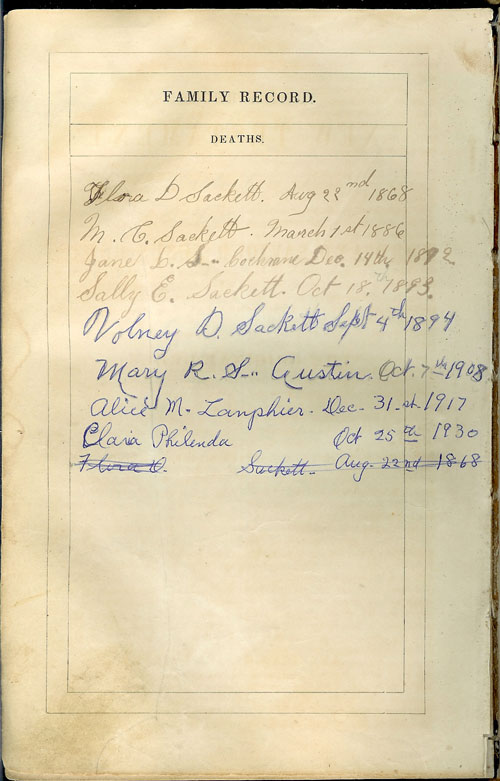 FAMILY RECORD.
DEATHS.
Flora D Sackett. Aug 22nd 1868
M. C. Sackett. March 1st 1886
Jane L. S-- Cochrane Dec. 14th 1892
Sally E. Sackett. Oct 18th 1893.
Volney D. Sackett Sept 4th 1894
Mary R. S-- Austin. Oct. 7th 1908
Alice M. Lanphier. Dec. 31st 1917
Clara Philenda Oct 25th 1930
Flora D. Sackett. Aug. 22nd 1868